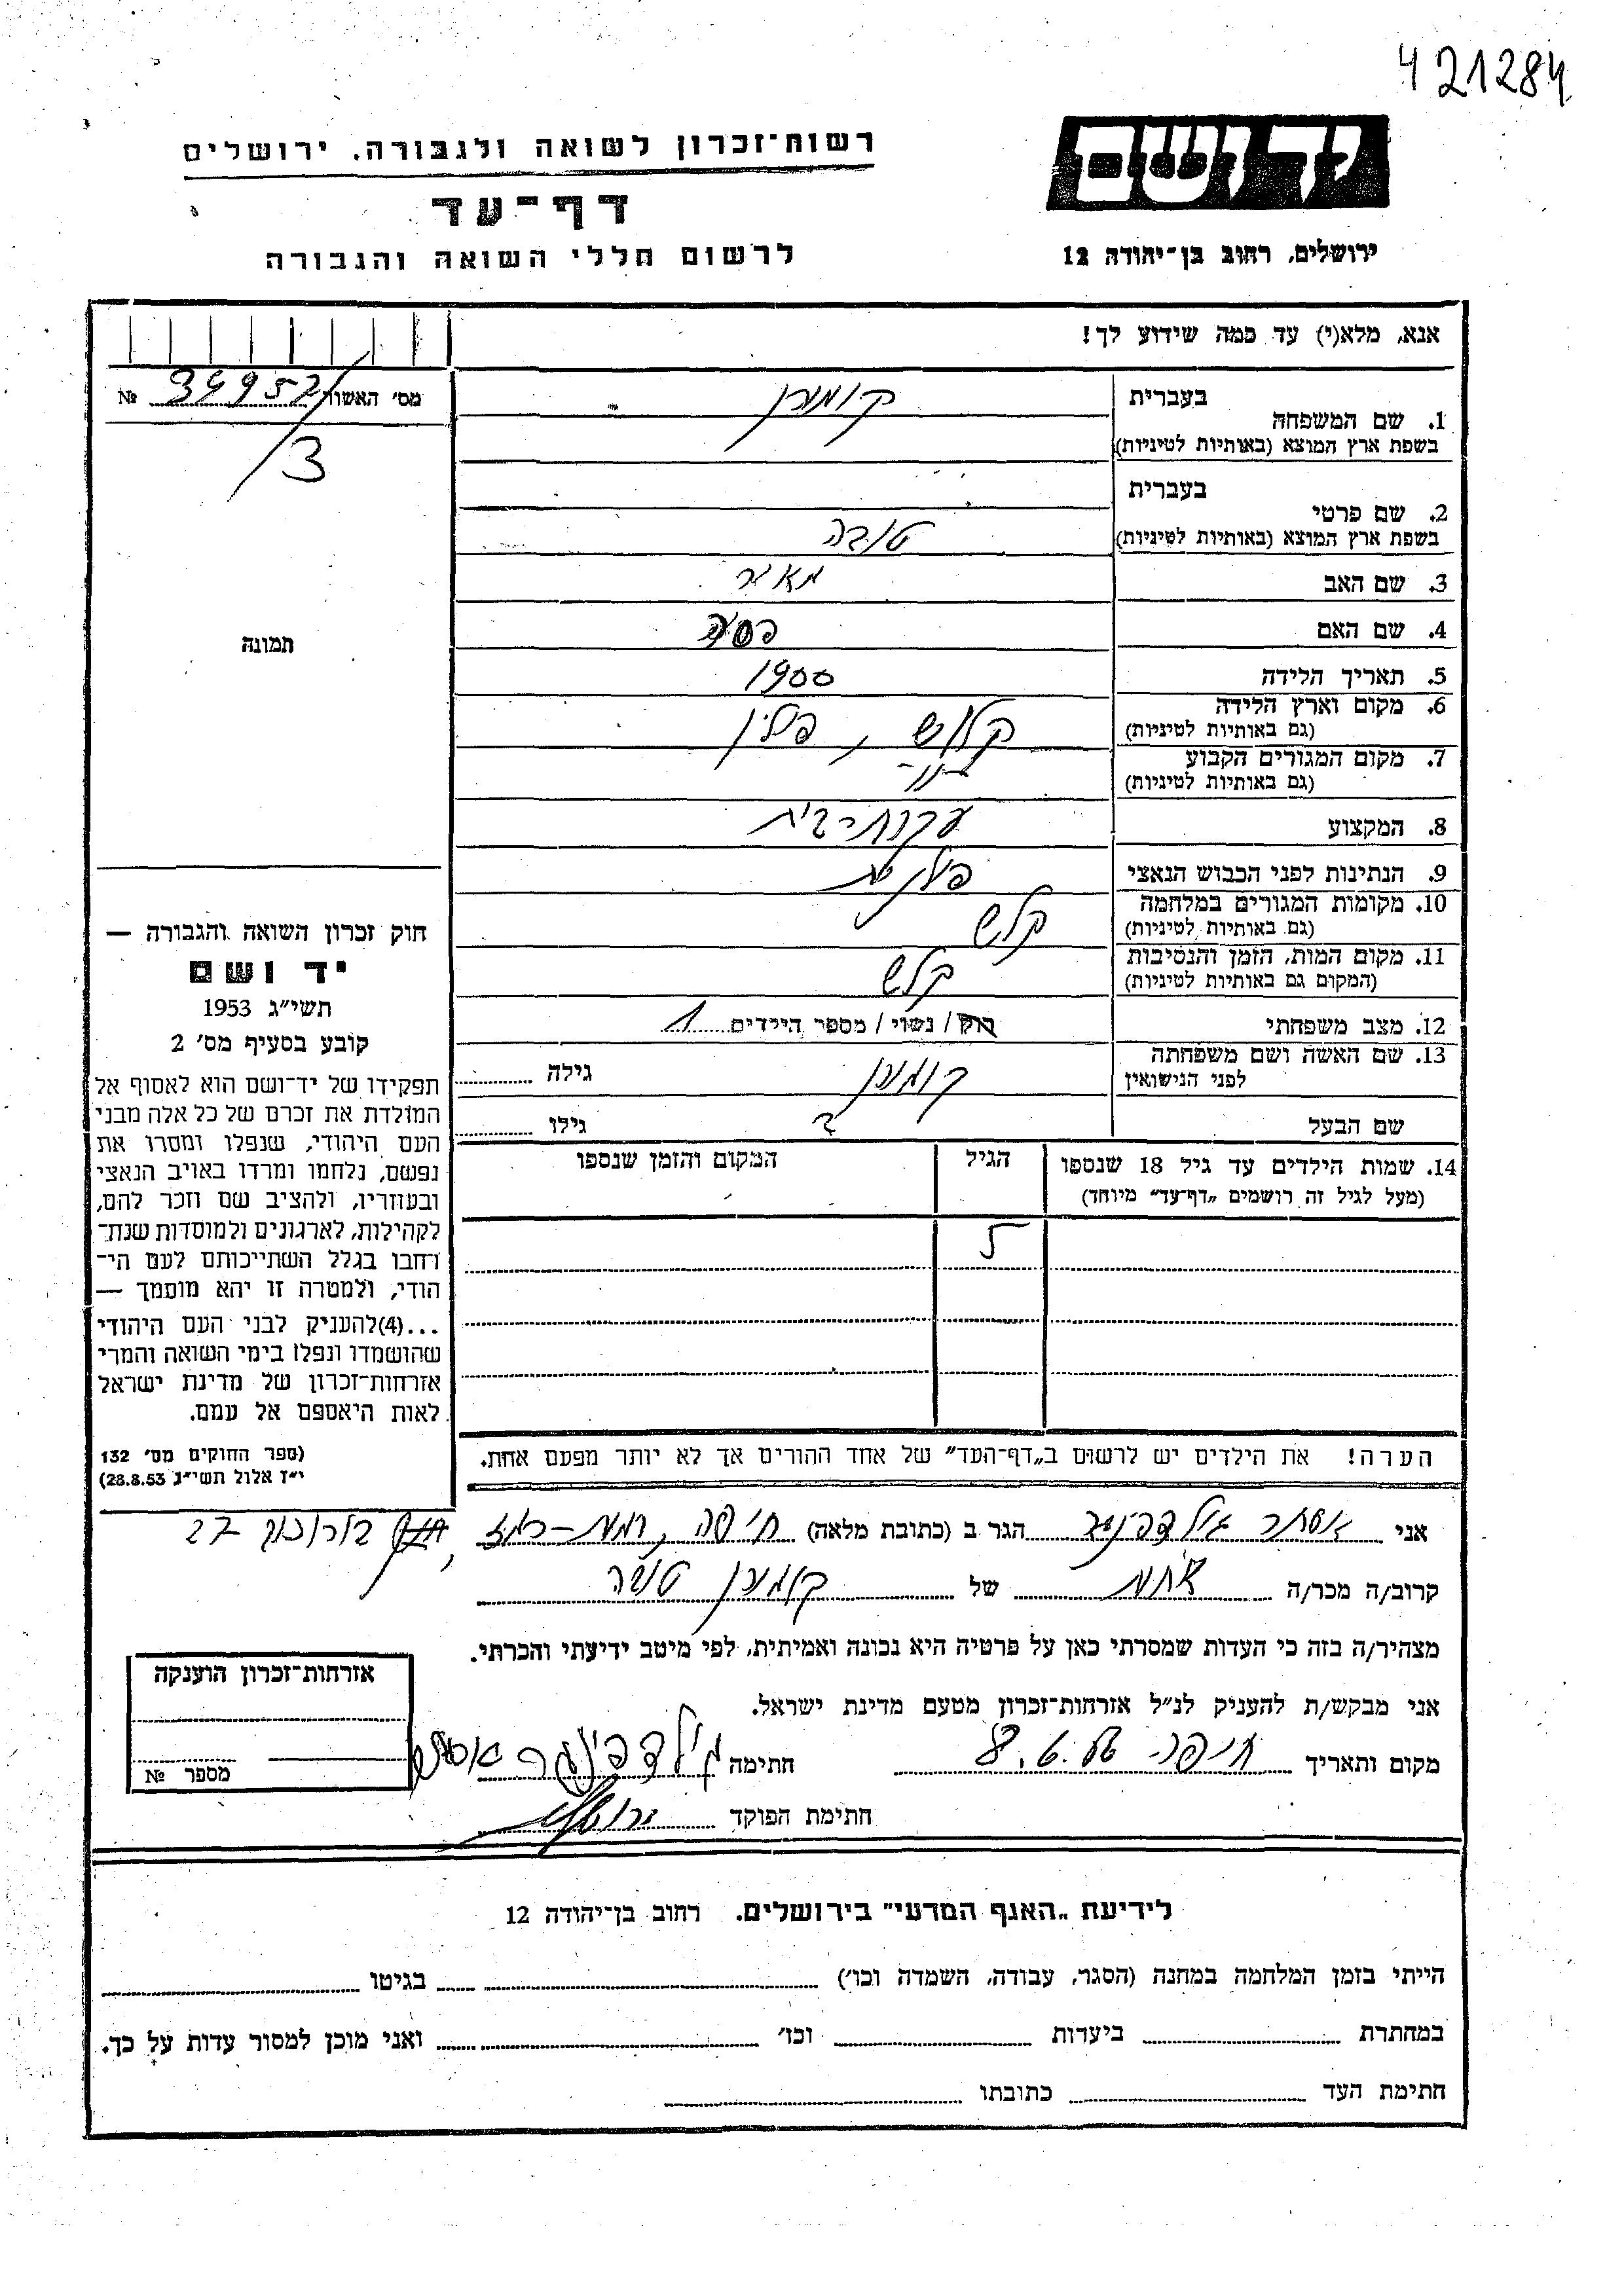 421284
יד ושם
רשות־זכרון לשואה ולגבורה, ירושלים
דף־עד
לרשום חללי השואה והגבורה
ירושלים, רחוב בן־יהודה 12
אנא, מלא(י) עד כמה שידוע לך!
מס' האשור 34952 №
/3
תמונה
בעברית
1. שם המשפחה
בשפת ארץ המוצא (באותיות לטיניות)
בעברית
2. שם פרטי
בשפת ארץ המוצא (באותיות לטיניות) טובה
3. שם האב מאיר
4. שם האם
5. תאריך הלידה 1900
6. מקום וארץ הלידה קלוש, פולין
(גם באותיות לטיניות)
7. מקום המגורים הקבוע
(גם באותיות לטיניות)
8. המקצוע עקרת־בית
9. הנתינות לפני הכבוש הנאצי פולנית
10. מקומות המגורים במלחמה קלש
(גם באותיות לטיניות)
11. מקום המות, הזמן והנסיבות קלש
(המקום גם באותיות לטיניות)
12. מצב משפחתי רווק / נשוי / מספר הילדים 1
13. שם האשה ושם משפחתה
לפני הנישואין גילה
שם הבעל ? גילו
14. שמות הילדים עד גיל 18 שנספו הגיל המקום והזמן שנספו
(מעל לגיל זה רושמים „דף־עד" מיוחד)
5
הערה! את הילדים יש לרשום ב„דף־העד" של אחד ההורים אך לא יותר מפעם אחת.
חוק זכרון השואה והגבורה —
יד ושם
תשי״ג 1953
קובע בסעיף מס' 2
תפקידו של יד־ושם הוא לאסוף אל
המולדת את זכרם של כל אלה מבני
העם היהודי, שנפלו ומסרו את
נפשם, נלחמו ומרדו באויב הנאצי
ובעוזריו, ולהציב שם וזכר להם,
לקהילות, לארגונים ולמוסדות שנח־
רחבו בגלל השתייכותם לעם הי־
הודי, ולמטרה זו יהא מוסמך —
...(4)להעניק לבני העם היהודי
שהושמדו ונפלו בימי השואה והמרי
אזרחות־זכרון של מדינת ישראל
לאות היאספם אל עמם.
(ספר החוקים מס' 132
י״ז אלול תשי״ג 28.8.53)
אני אסתר גילדפינגר הגר ב (כתובת מלאה) חיפה, רמת־רמז, 27
קרוב/ה מכר/ה אחות של טובה
מצהיר/ה בזה כי העדות שמסרתי כאן על פרטיה היא נכונה ואמיתית, לפי מיטב ידיעתי והכרתי.
אני מבקש/ת להעניק לנ״ל אזרחות־זכרון מטעם מדינת ישראל.
מקום ותאריך חיפה 8.6. חתימה גילדפינגר אסתר
חתימת הפוקד
אזרחות־זכרון הוענקה
מספר №
לידיעת „האגף המדעי" בירושלים. רחוב בן־יהודה 12
הייתי בזמן המלחמה במחנה (הסגר, עבודה, השמדה וכו') בגיטו
במחתרת ביערות וכו' ואני מוכן למסור עדות על כך.
חתימת העד כתובתו